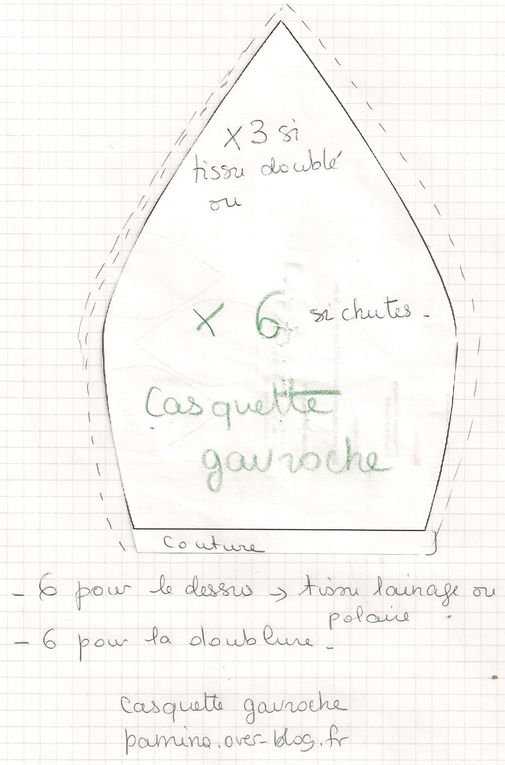 x 3 si
tissu doublé
ou
x 6 si chutes -
Casquette
gavroche
Couture
- 6 pour le dessus → tissu lainage ou
polaire
- 6 pour la doublure -
casquette gavroche
pamino.over-blog.fr